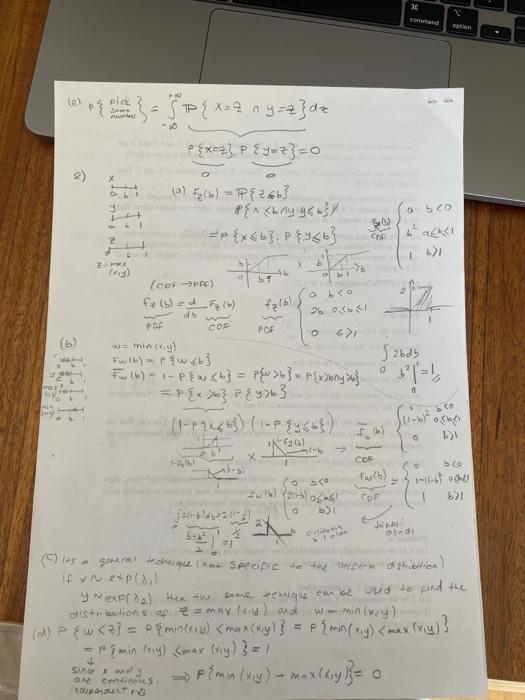 ⌘
command
⌥
option
(e) P{pick same number} = ∫_{-∞}^{+∞} P{x=z ∩ y=z}dz
P{x=z}. P{y=z}=0
0 0
2)
x
0 b 1
y
z
z=max (x,y)
(a) F_z(b) = P{z≤b}
P{x≤b ∩ y≤b}
= P{x≤b}. P{y≤b}
F_z(b) CDF { 0 b<0
b² 0≤b≤1
1 b>1
(CDF → PDF)
f_z(b) = d/db F_z(b)
PDF CDF
f_z(b) PDF { 0 b<0
2b 0≤b≤1
0 b>1
∫ 2bdb
b² |¹₀ = 1
(b)
w = min(x,y)
F_w(b) = P{w≤b}
F̄_w(b) = 1 - P{w≤b} = P{w>b} = P{x>b∩y>b}
= P{x>b} P{y>b}
(1-P{x≤b}) (1-P{y≤b})
1-F_y(b)
1-b
→ F̄_w(b) CDF { 1 b<0
(1-b)² 0≤b≤1
0 b>1
F_w(b) CDF = { 0 b<0
1-(1-b)² 0≤b≤1
1 b>1
f_w(b) { 0 b<0
2(1-b) 0≤b≤1
0 b>1
∫2(1-b)db=2(1-½)
b-b²/2 |¹₀ = ½
(c) Its a general technique (not specific to the uniform distribtion)
If x ~ exp(λ₁)
y ~ exp(λ₂) then the same technique can be used to find the
distributions of z = max (x,y) and w = min(x,y)
(d) P{w<z} = P{min(x,y) < max(x,y)} = P{min(x,y) < max(x,y)}
= P{min (x,y) ≤ max (x,y)} = 1
since x and y
are continous,
independent rvs
⟹ P{min(x,y) - max(x,y)} = 0